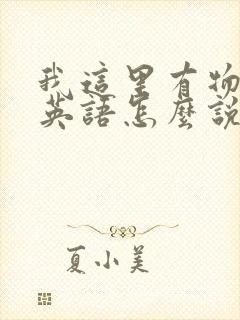 我這里有物
英語怎麼說
夏小美